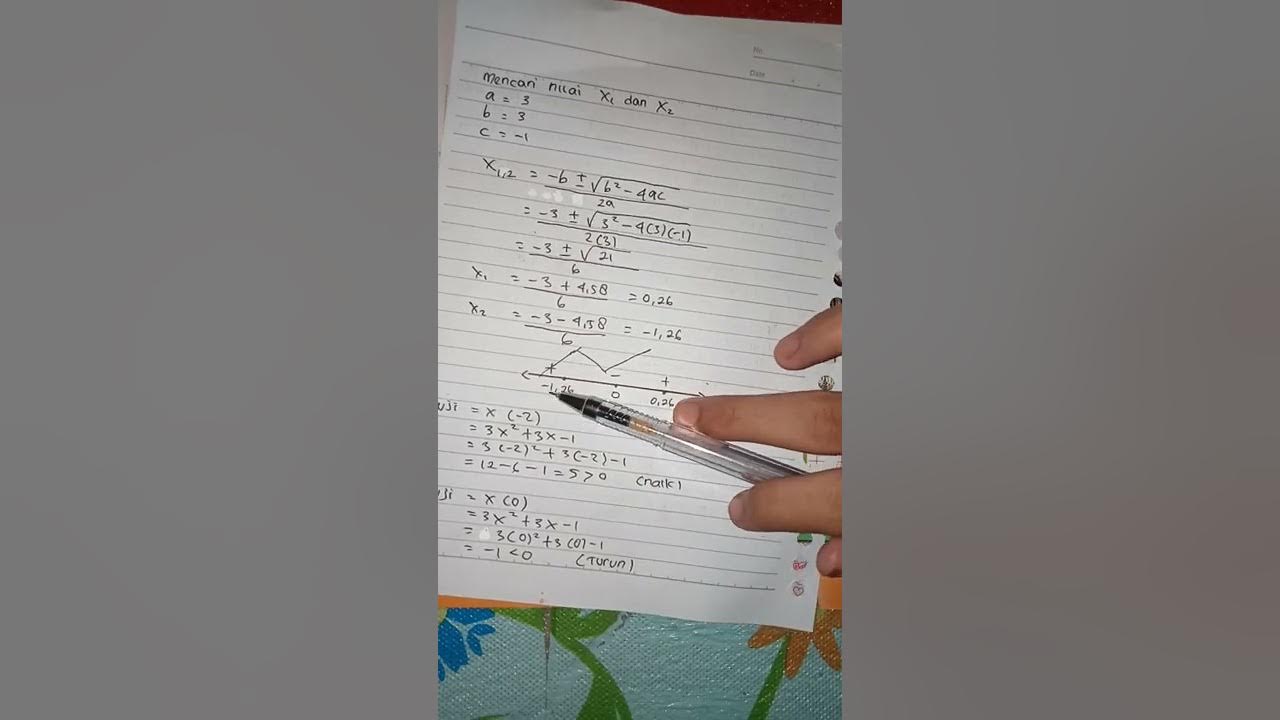 No.
Date
mencari nilai X₁ dan X₂
a = 3
b = 3
c = -1
X₁,₂ = -b ± √b² - 4ac
2a
= -3 ± √3² - 4(3)(-1)
2(3)
= -3 ± √21
6
X₁ = -3 + 4,58 = 0,26
6
X₂ = -3 - 4,58 = -1,26
6
+ - +
-1,26 0 0,26
uji = x (-2)
= 3x² + 3x - 1
= 3(-2)² + 3(-2) - 1
= 12 - 6 - 1 = 5 > 0 (naik)
uji = x (0)
= 3x² + 3x - 1
= 3(0)² + 3(0) - 1
= -1 < 0 (Turun)